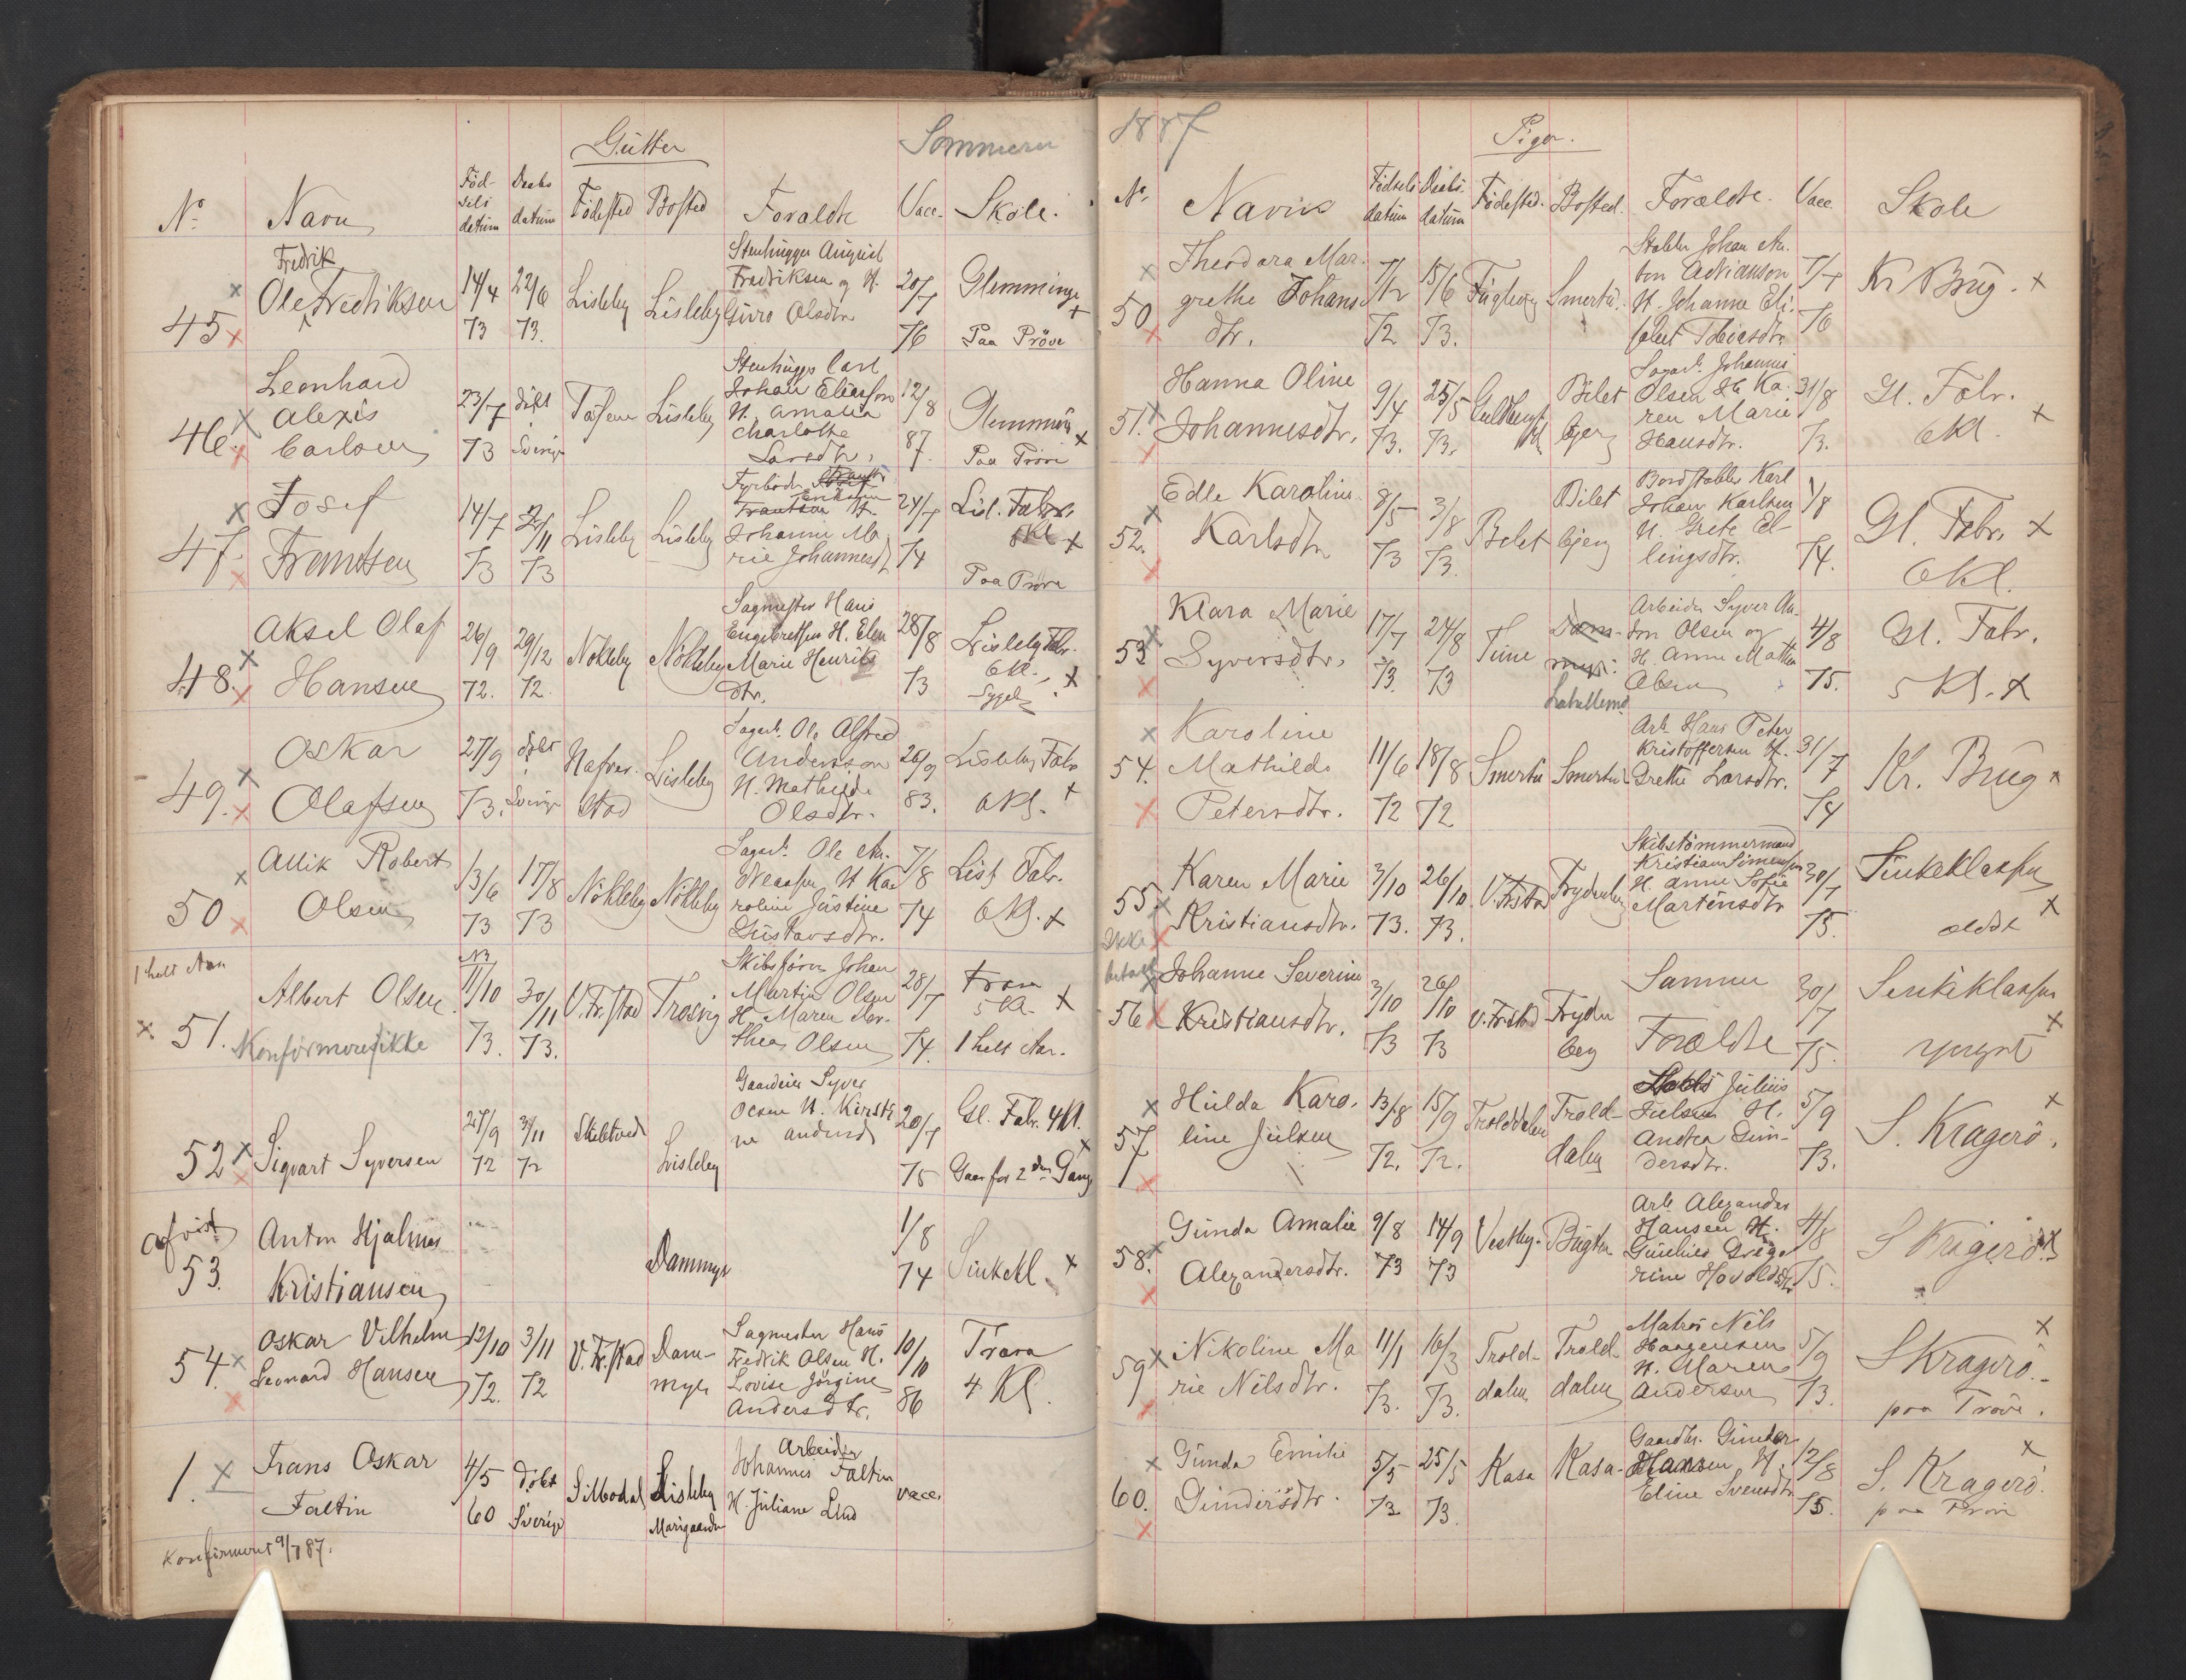 Gutter
Sommeren
No Navn Fødselsdatum Daabsdatum Fødested Bosted Forældre Vacc. Skole.
Fredrik
45 Ole Fredriksen
14/4 73
22/6 73.
Lisleby
Lisleby
Stenhugger August
Fredriksen og H.
Guro Olsdtr
20/7 76
Glemminge
Paa Prøve
46. Leonhard
Alexis
Carlsen
23/7 73
døbt Sverige
Lisleby
Stenhugger Carl
Johan Eliasson
H. Amalia
Charlotte
Larsdtr.
12/8 87.
Glemminge
Paa Prøve
47. Josef
Frantsen
14/7 73
Lisleby
Lisleby
Fyrbøder
Johanne Ma
rie Johannesd
24/7 74
Lisl. Fabr.
6 Kl
Paa Prøve
48. Aksel Olaf
Hansen
26/9 72.
29/12 72.
Nøkleby
Nøkleby
Sagmester Hans
Engebretsen H. Elen
Marie Henriks
dtr.
28/8 73
Lisleby Fabr.
6 Kl.
Sygel
49. Oskar
Olafsen
27/9 73.
døbt i Sverige
Lisleby
Sagarb. Ole Alfred
Anderson
H. Mathilde
Olsdtr.
26/9 83.
Lisleby Fabr
6 Kl.
50 Robert
Olsen
13/6 73
17/8 73
Nøkleby
Nøkleby
Sagarb. Ole An.
H Ka
roline Justine
Gustavsdtr.
7/8 74
Lisl Fabr.
6 Kl.
1 helt Aar
51. Albert Olsen
Konfirmeres ikke
11/10 73.
30/11 73.
V. Fr.stad
Trosvig
Skibsfører Johan
Martin Olsen
H. Maren
thea Olsen
28/7 74.
Trara
5 Kl.
1 helt Aar.
52 Sigvart Syversen
27/9 72
3/11 72
Skibtved
Lisleby
Gaardeier Syver
Olsen H. Kirsti
ne Andersd
20/7 75
Gl. Fabr. 4 Kl.
Gaar for 2den Gang
afvist
53. Anton Hjalmar
Kristiansen
Dammyr
1/8 74
Sinkekl.
54. Oskar Vilhelm
Leonard Hansen
12/10 72.
3/11 72
V. Fr.stad
Dam-
myr
Sagmester Hans
Fredrik Olsen H.
Lovise Jørgine
Andersdtr.
10/10 86
Trara
4 Kl.
1. Frans Oskar
Faltin
4/5 60
Døbt Sverige
Silbodal
Lisleby
Marigaarden
Arbeider
Johannes Faltin
H. Juliane Lind
vacc.
Konfirmeret 9/7 87.
1887
Piger.
No. Navn Fødselsdatum Daabsdatum Fødested. Bosted. Forældre. Vacc. Skole
50 Theodora Mar-
grethe Johans
dtr.
7/12 72
15/6 73.
Smertu.
Stabler Johan An.
ton Adrianson
H. Johanne Eli.
sabet Tobiasdtr.
7/7 76
Kr Brug.
51. Hanna Oline
Johannesdtr.
9/4 73.
25/5 73.
Bilet
bjerg
Sagarb. Johannes
Olsen H. Ka-
ren Marie
Hansdtr.
31/8 73.
Gl. Fabr.
6 Kl.
52. Edle Karoline
Karlsdtr
8/5 73
3/8 73.
Bilet
Bilet
bjerg
Bordstabler Karl
Johan Karlsen
H. Grete El-
lingsdtr.
1/8 74.
Gl. Fabr.
6 Kl.
53 Klara Marie
Syversdtr.
17/7 73.
24/8 73
Tune
Dam-
myr.
Arbeider Syver An-
ton Olsen og
H. Anne Mathea
Olsen
4/8 75.
Gl. Fabr.
5 Kl.
54. Karoline
Mathilde
Petersdtr.
11/6 72
18/8 72
Smertu
Smertu
Arb. Hans Peter
Kristoffersen H.
Grethe Larsdtr.
31/7 74
Kr. Brug
55. Karen Marie
Kristiansdtr.
3/10 73.
26/10 73.
V. Frstad
Frydenberg
Skibstømmermand
Kristian Simensen
H. Anne Sofie
Martensdtr
30/7 75.
Sinkeklassen
ældst
Ikke
betalt
56 Johanne Severine
Kristiansdtr.
3/10 73
26/10 73
V. Frstad
Fryden
berg
Samme
Forældre
30/7 75.
Sinkeklassen
yngst
57 Hulda Karo-
line Julsen
13/8 72.
15/9 72.
Trolddalen
Trold-
dalen
Julius
Julsen H.
Andrea Gun-
dersdtr.
5/9 73.
S. Kragerø.
58. Gunda Amalie
Alexandersdtr.
9/8 73
14/9 73
Vestby.
Arb. Alexander
Hansen H.
rine
4/8 75.
S Kragerø.
59 Nikoline Ma
rie Nilsdtr.
11/1 73.
16/3 73.
Trold-
dalen
Trold-
dalen
Matros Nils
Haagensen
H. Maren
Andersen
5/9 73.
S Kragerø.
paa Prøve.
60. Gunda Emilie
Gundersdtr.
5/5 73
25/5 73.
Kasa
Kasa
Gaardbr. Gunder
Hansen H.
Eline Svensdtr
12/8 75.
S. Kragerø.
paa Prøve